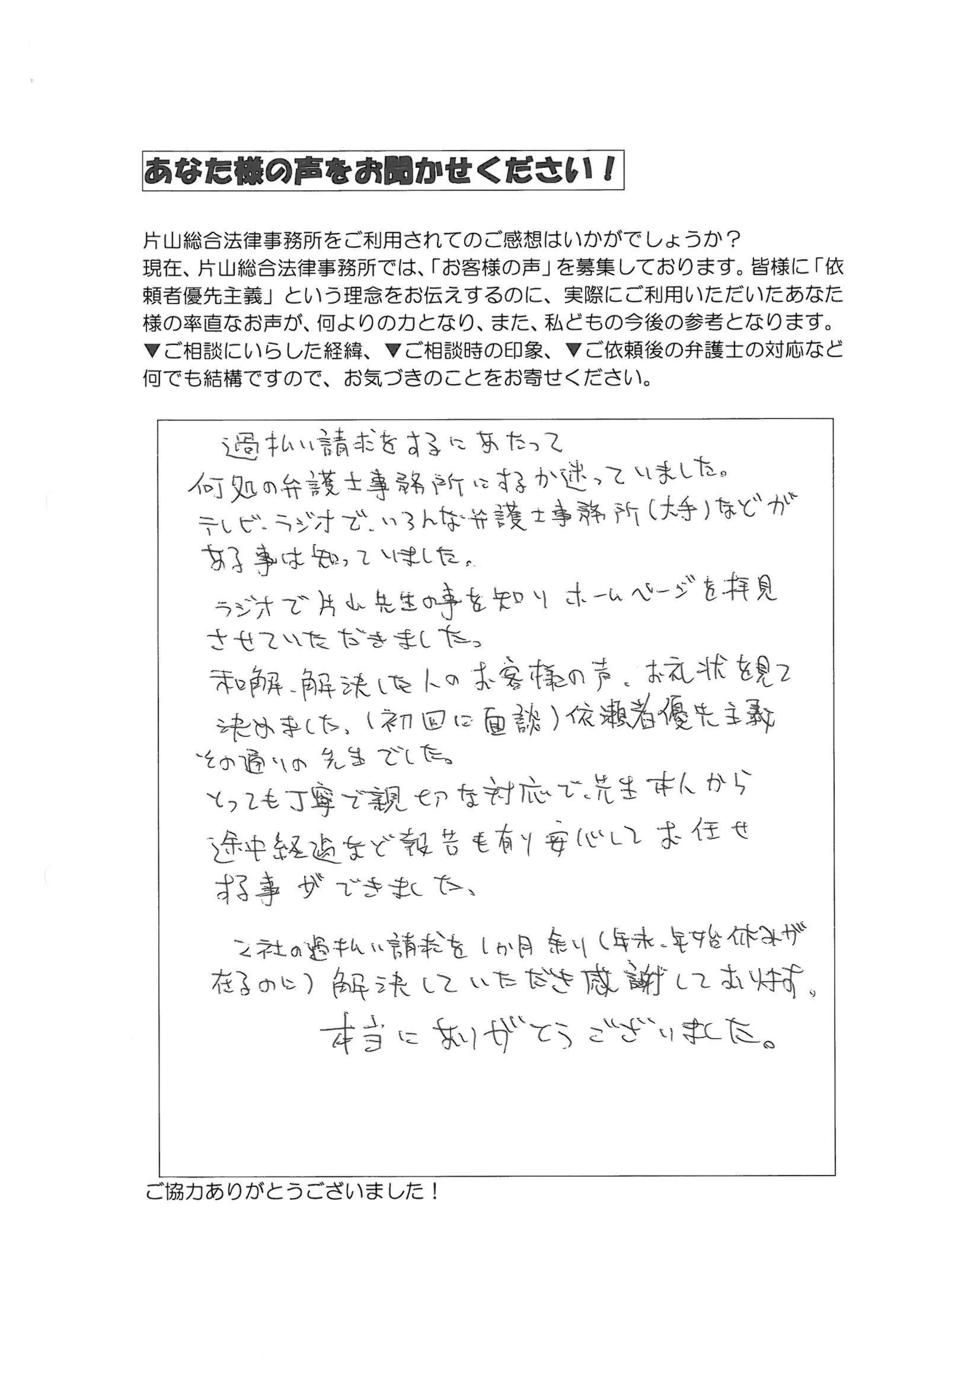 あなた様の声をお聞かせください！
片山総合法律事務所をご利用されてのご感想はいかがでしょうか？
現在、片山総合法律事務所では、「お客様の声」を募集しております。皆様に「依
頼者優先主義」という理念をお伝えするのに、実際にご利用いただいたあなた
様の率直なお声が、何よりの力となり、また、私どもの今後の参考となります。
▼ご相談にいらした経緯、▼ご相談時の印象、▼ご依頼後の弁護士の対応など
何でも結構ですので、お気づきのことをお寄せください。
過払い請求をするにあたって
何処の弁護士事務所にするか迷っていました。
テレビ、ラジオで、いろんな弁護士事務所(大手)などが
ある事は知っていました。
ラジオで片山先生の事を知りホームページを拝見
させていただきました。
和解、解決した人のお客様の声、お礼状を見て
決めました。(初回に面談)依頼者優先主義
その通りの先生でした。
とっても丁寧で親切な対応で、先生本人から
途中経過など報告も有り安心してお任せ
する事ができました。
2社の過払い請求を1か月余り(年末、年始休みが
在るのに)解決していただき感謝しております。
本当にありがとうございました。
ご協力ありがとうございました！